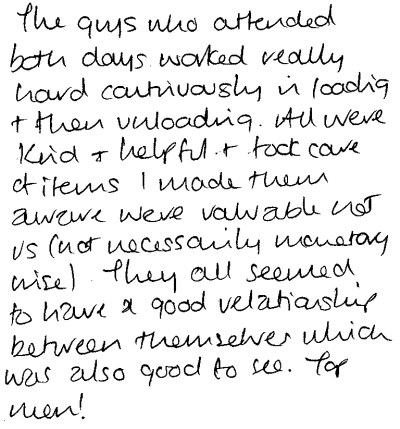 The guys who attended
both days worked really
hard continuously in loading
+ then unloading. All were
kind + helpful + took care
of items I made them
aware were valuable not
us (not necessarily monetary
wise). They all seemed
to have a good relationship
between themselves which
was also good to see. Top
men!